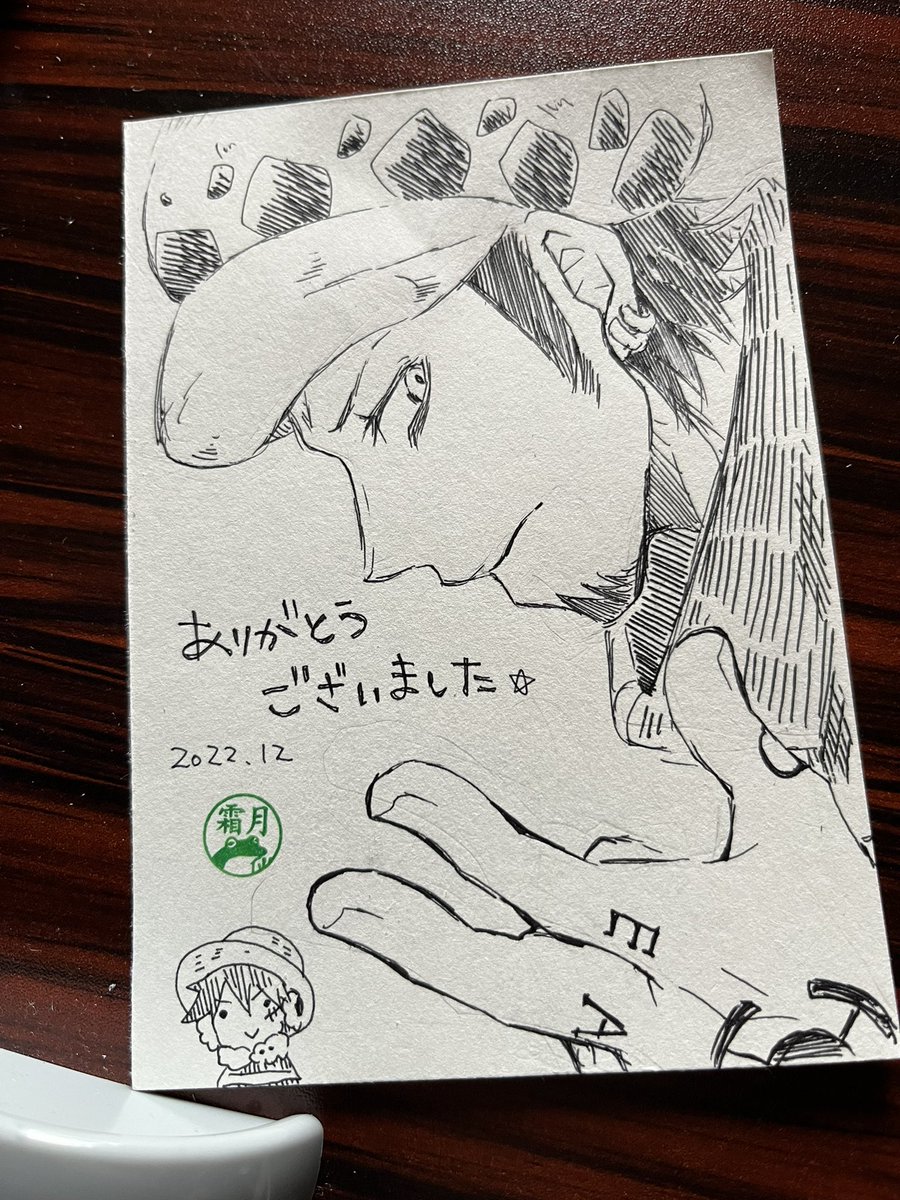 ありがとう
ございました☆
2022.12
霜月
E
A